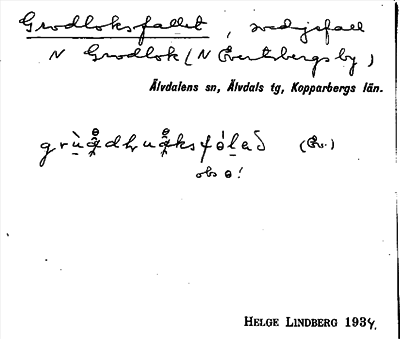 Grodloksfallet, svedjefall
N Grodlok (N Evertsbergs by)
Älvdalens sn, Älvdals tg, Kopparbergs län.
(Ev.)
obs ɵ!
HELGE LINDBERG 1934.